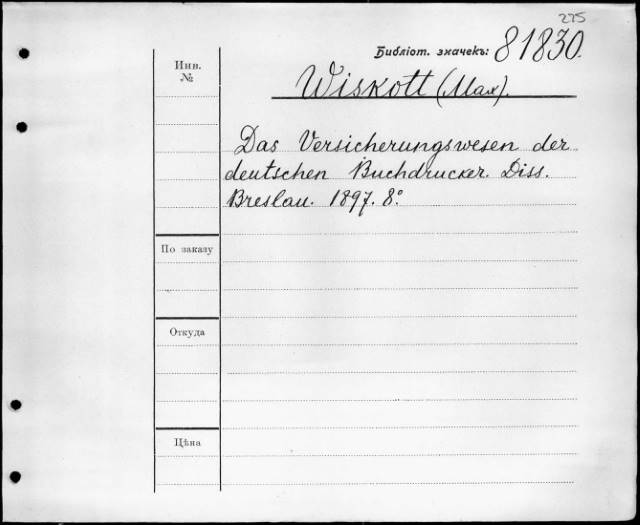 275
Библіот. значекъ: 81830.
Инв.
№
Wiskott (Max).
Das Versicherungswesen der
deutschen Buchdrucker. Diss.
Breslau. 1897. 8º
По заказу
Откуда
Цѣна